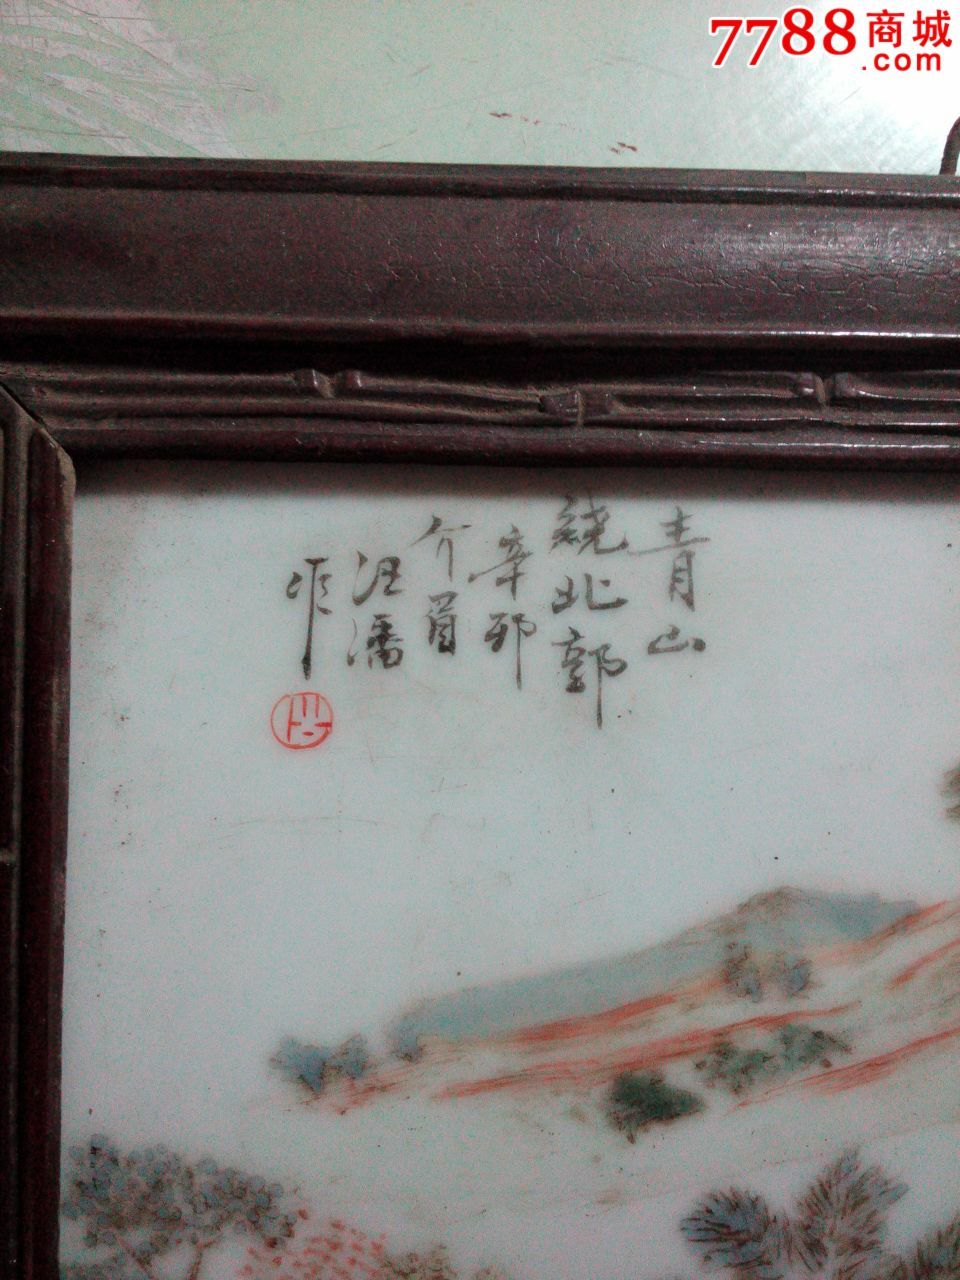 7788商城
.com
青山
繞北郭
辛卯
介眉
汪藩
作